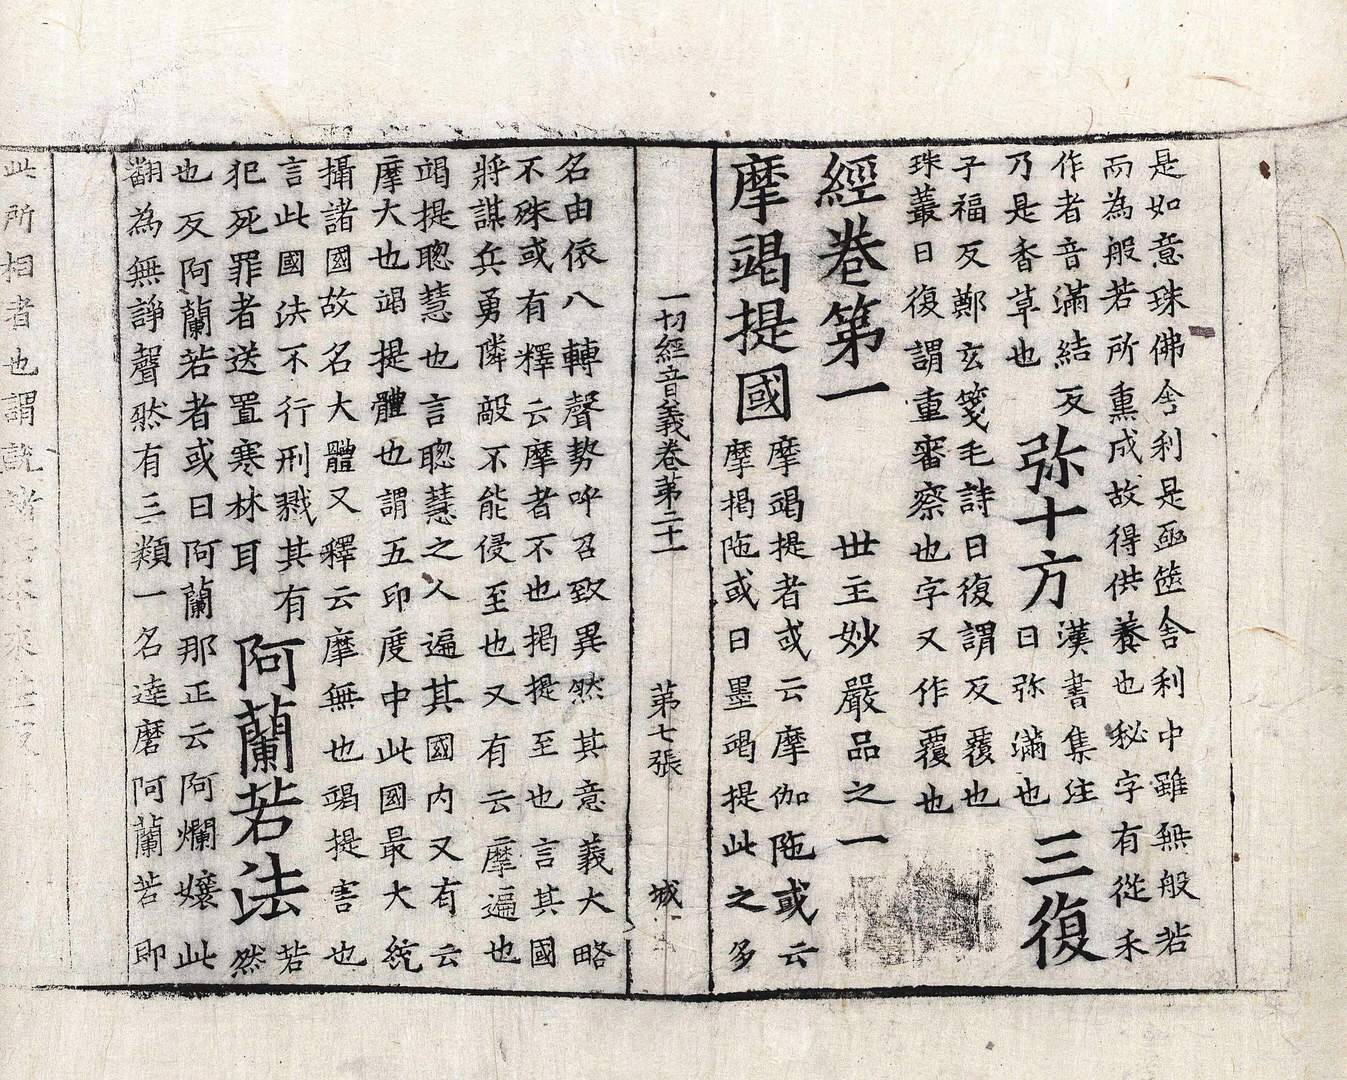 是如意珠佛舍利是函簉舎利中雖無般若
而為般若所熏成故得供養也秘字有從禾
作者音滿結反
弥十方
漢書集注
乃是香草也
曰弥滿也
三復
子福反鄭玄箋毛詩曰復謂反覆也
珠叢曰復謂重審察也字又作覆也
經卷第一
世主妙嚴品之一
摩竭提國
摩竭提者或云摩伽陁或云
摩揭陁或曰墨竭提此之多
一切經音義卷第二十一
第七張
城
名由依八轉聲勢呼召致異然其意義大略
不殊或有釋云摩者不也揭提至也言其國
將謀兵勇隣敵不能侵至也又有云摩遍也
竭提聰慧也言聰慧之人遍其國内又有云
摩大也竭提體也謂五印度中此國最大統
攝諸國故名大體又釋云摩無也竭提害也
言此國法不行刑戮其有
犯死罪者送置寒林耳
阿蘭若法
若
然
也反阿蘭若者或曰阿蘭那正云阿爛孃此
翻為無諍聲然有三類一名達磨阿蘭若即
此所相者也謂說